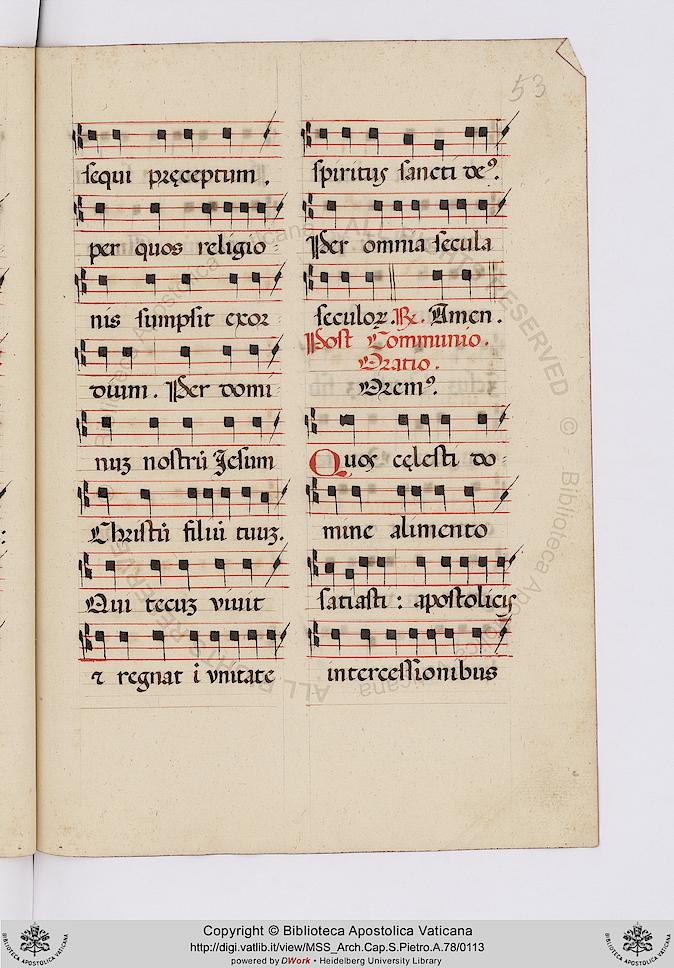 53
sequi pręceptum.
per quos religio
nis sumpsit exor
dium. Per domi
nuʒ nostrū Jesum
Christū filiū tuuʒ.
Qui tecuʒ viuit
⁊ regnat ī vnitate
spiritus sancti deꝰ.
Per omnia secula
seculoꝝ. ℞. Amen.
Post Communio.
Oratio.
Oremꝰ.
Quos cęlesti do
mine alimento
satiasti : apostolicis
intercessionibus
ALL RIGHTS RESERVED © - Biblioteca Apostolica Vaticana
Copyright © Biblioteca Apostolica Vaticana
http://digi.vatlib.it/view/MSS_Arch.Cap.S.Pietro.A.78/0113
powered by DWork • Heidelberg University Library
BIBLIOTECA APOSTOLICA VATICANA
BIBLIOTECA APOSTOLICA VATICANA